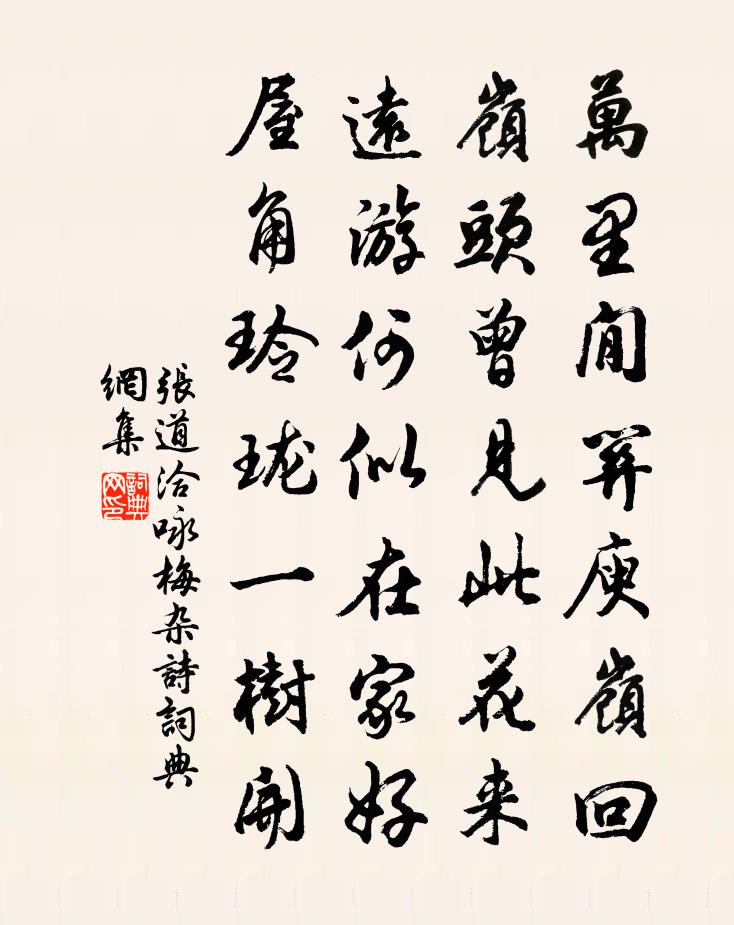 萬里閒關庾嶺回
嶺頭曾見此花来
遠游何似在家好
屋角玲珑一樹開
張道洽咏梅杂詩詞典
網集
詞典
网印